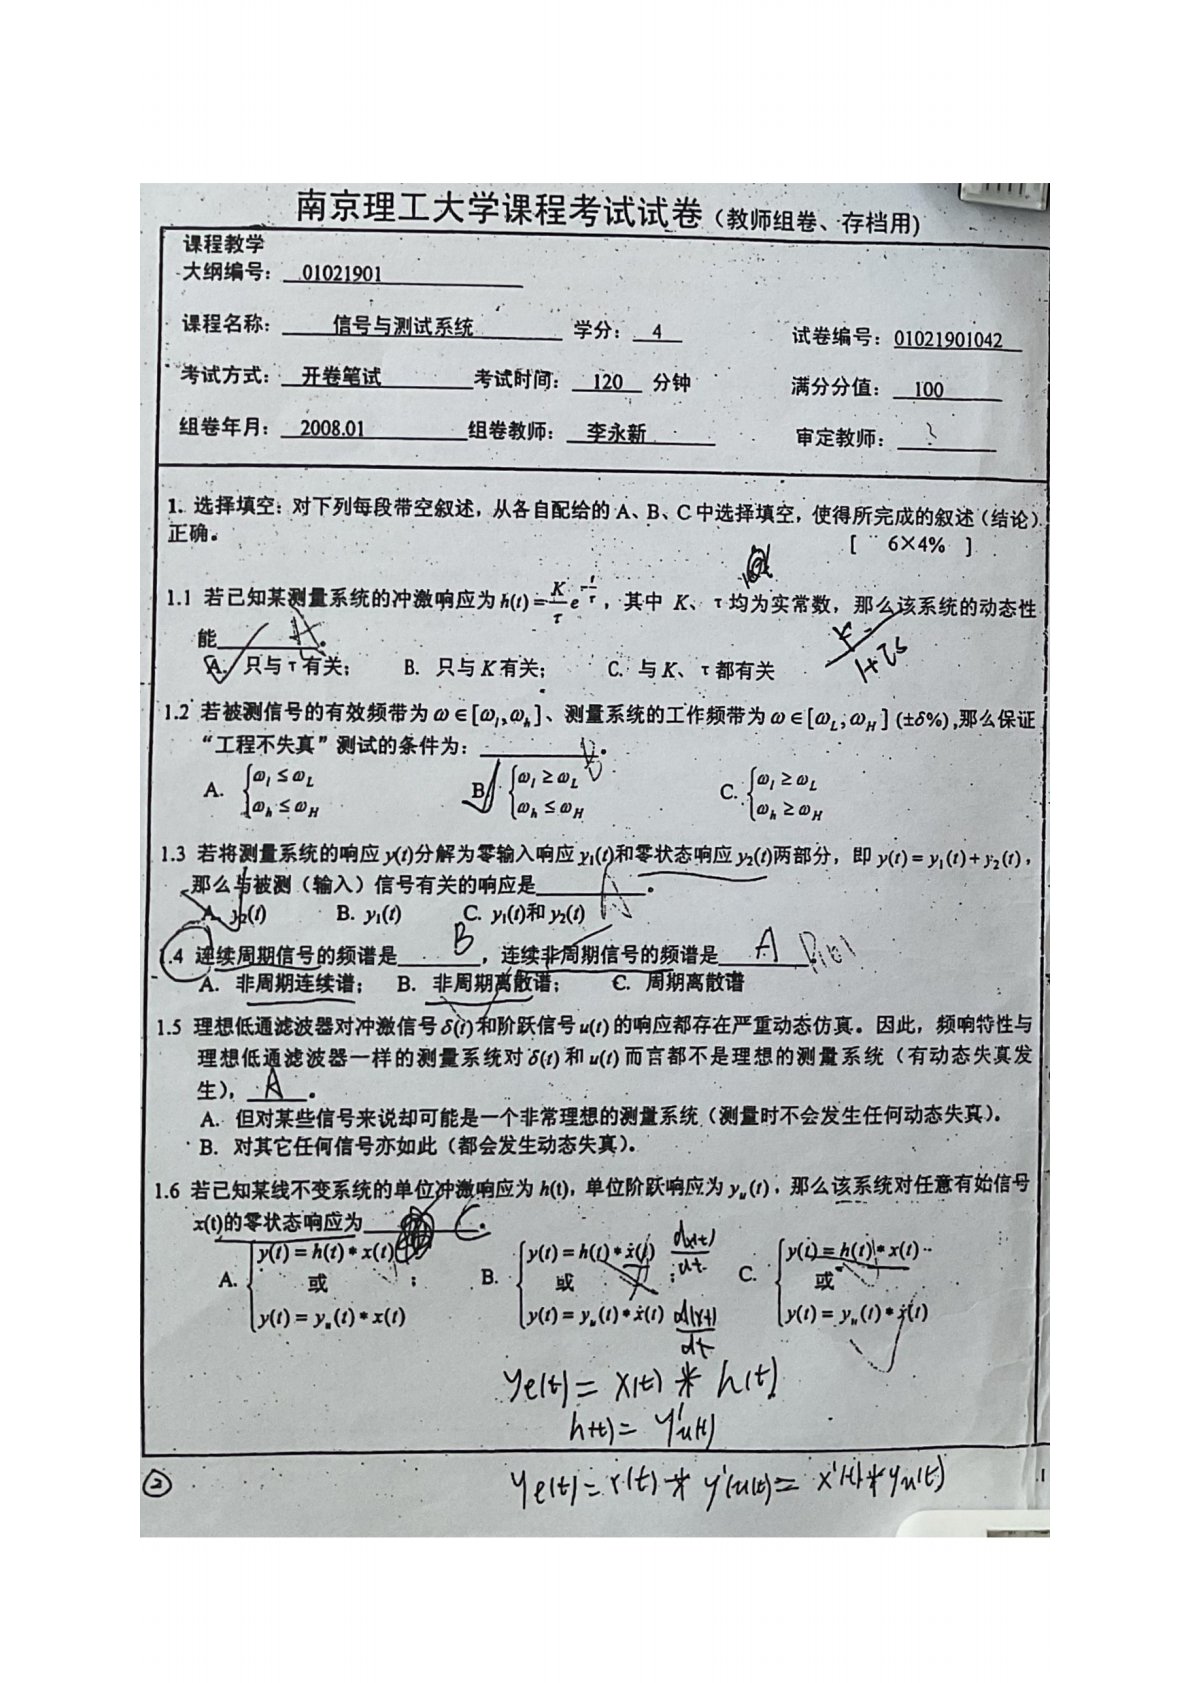 南京理工大学课程考试试卷（教师组卷、存档用)
课程教学
大纲编号： 01021901
课程名称： 信号与测试系统 学分： 4 试卷编号：01021901042
考试方式： 开卷笔试 考试时间： 120 分钟 满分分值： 100
组卷年月： 2008.01 组卷教师： 李永新 审定教师：
1. 选择填空：对下列每段带空叙述，从各自配给的 A、B、C 中选择填空，使得所完成的叙述（结论）
正确。 [ 6×4% ]
1.1 若已知某测量系统的冲激响应为 h(t) = K/τ e^(-t/τ)，其中 K、τ 均为实常数，那么该系统的动态性
能 A 。
K/(1+τs)
A. 只与 τ 有关； B. 只与 K 有关； C. 与 K、τ 都有关
1.2 若被测信号的有效频带为 ω∈[ω_l,ω_h]、测量系统的工作频带为 ω∈[ω_L,ω_H] (±δ%),那么保证
“工程不失真”测试的条件为： B 。
A. { ω_l ≤ ω_L B. { ω_l ≥ ω_L C. { ω_l ≥ ω_L
ω_h ≤ ω_H ω_h ≤ ω_H ω_h ≥ ω_H
1.3 若将测量系统的响应 y(t)分解为零输入响应 y₁(t)和零状态响应 y₂(t)两部分，即 y(t) = y₁(t)+y₂(t)，
那么与被测（输入）信号有关的响应是 A 。
A. y₂(t) B. y₁(t) C. y₁(t)和 y₂(t)
1.4 连续周期信号的频谱是 B ，连续非周期信号的频谱是 A 。
A. 非周期连续谱； B. 非周期离散谱； C. 周期离散谱
1.5 理想低通滤波器对冲激信号 δ(t) 和阶跃信号 u(t) 的响应都存在严重动态仿真。因此，频响特性与
理想低通滤波器一样的测量系统对 δ(t) 和 u(t) 而言都不是理想的测量系统（有动态失真发
生）， A 。
A. 但对某些信号来说却可能是一个非常理想的测量系统（测量时不会发生任何动态失真）。
B. 对其它任何信号亦如此（都会发生动态失真）。
1.6 若已知某线不变系统的单位冲激响应为 h(t)，单位阶跃响应为 y_u(t)，那么该系统对任意有始信号
x(t)的零状态响应为 C 。
A. { y(t) = h(t)*x(t) B. { y(t) = h(t)*ẋ(t) dx(t)/dt C. { y(t) = h(t)*x(t)
或 ； 或 ； 或
y(t) = y_u(t)*x(t) y(t) = y_u(t)*ẋ(t) d(x(t))/dt y(t) = y_u(t)*ẋ(t)
ye(t) = x(t) * h(t)
h(t) = y'u(t)
② ye(t) = x(t) * y'(u(t)) = x'(t) * yu(t) 1